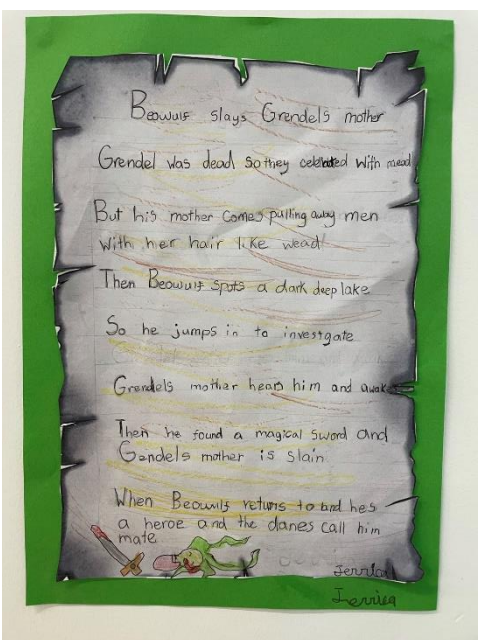 Beowulf slays Grendels mother
Grendel was dead so they celebrated with mead
But his mother comes pulling away men
with her hair like wead
Then Beowulf spots a dark deep lake
So he jumps in to investgate
Grendels mother hears him and awake
Then he found a magical sword and
Gendels mother is slain
When Beowulf returns to land hes
a heroe and the danes call him
mate
Jerrica
Jerrica